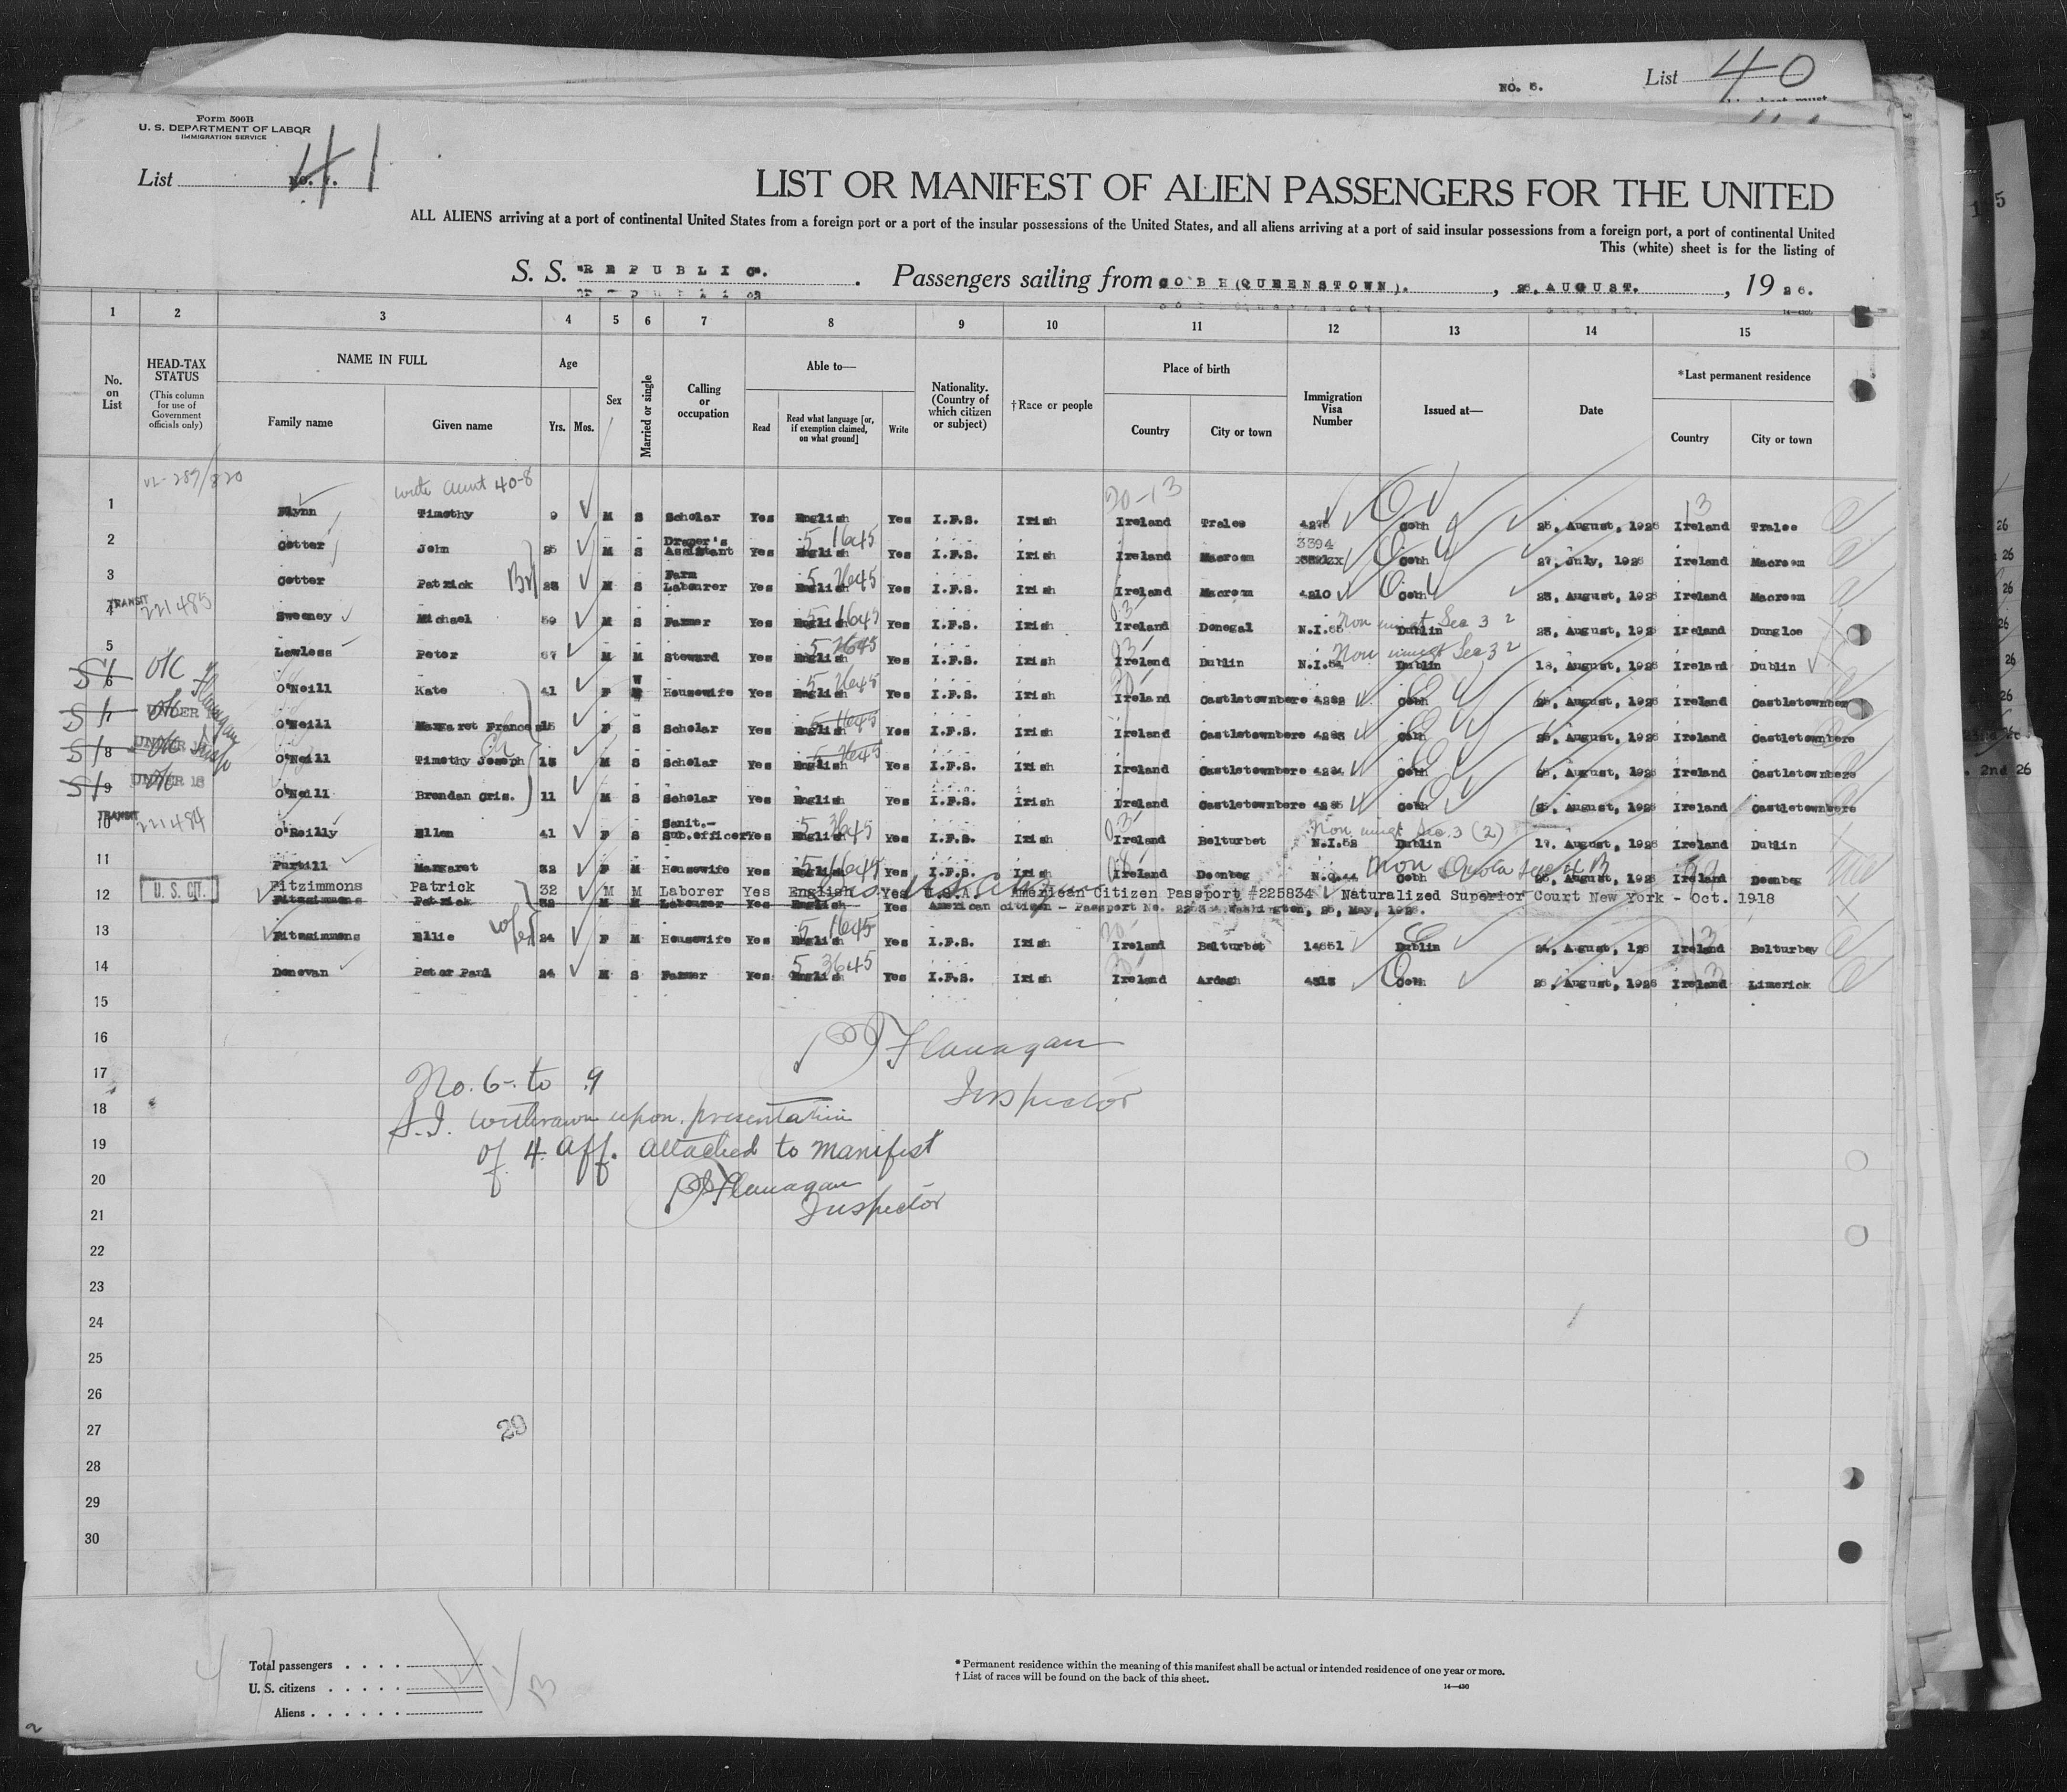 NO. 5. List 40
Form 500B
U. S. DEPARTMENT OF LABOR
IMMIGRATION SERVICE
List 41
LIST OR MANIFEST OF ALIEN PASSENGERS FOR THE UNITED
ALL ALIENS arriving at a port of continental United States from a foreign port or a port of the insular possessions of the United States, and all aliens arriving at a port of said insular possessions from a foreign port, a port of continental United
This (white) sheet is for the listing of
S. S. "REPUBLIC". Passengers sailing from COBH (QUEENSTOWN). , 26, AUGUST. , 1926.
14—430b
1 2 3 4 5 6 7 8 9 10 11 12 13 14 15
No. on List
HEAD-TAX STATUS
(This column for use of Government officials only)
NAME IN FULL
Family name Given name
Age
Yrs. Mos.
Sex
Married or single
Calling or occupation
Able to—
Read
Read what language [or, if exemption claimed, on what ground]
Write
Nationality. (Country of which citizen or subject)
†Race or people
Place of birth
Country City or town
Immigration Visa Number
Issued at—
Date
*Last permanent residence
Country City or town
with aunt 40-8
1 Flynn Timothy 9 M S Scholar Yes English Yes I.F.S. Irish Ireland Tralee 4275 Cobh 25, August, 1926 Ireland Tralee
2 Cotter John 25 M S Draper's Assistant Yes English Yes I.F.S. Irish Ireland Macroom 3394 Cobh 27, July, 1926 Ireland Macroom
3 Cotter Patrick Br 23 M S Farm Labourer Yes English Yes I.F.S. Irish Ireland Macroom 4210 Cobh 23, August, 1926 Ireland Macroom
4 TRANSIT 221485 Sweeney Michael M S Farmer Yes English Yes I.F.S. Irish Ireland Donegal N.I.55 Dublin Non immigt Sec 3 2 23, August, 1926 Ireland Dungloe
5 Lawless Peter M M Steward Yes English Yes I.F.S. Irish Ireland Dublin N.I.54 Dublin Non immigt Sec 3 2 18, August, 1926 Ireland Dublin
6 OK O'Neill Kate 41 F W Housewife Yes English Yes I.F.S. Irish Ireland Castletownbere 4282 Cobh 25, August, 1926 Ireland Castletownbere
7 OK O'Neill Margaret Frances 15 F S Scholar Yes English Yes I.F.S. Irish Ireland Castletownbere 4283 Cobh 25, August, 1926 Ireland Castletownbere
8 OK O'Neill Timothy Joseph 13 M S Scholar Yes English Yes I.F.S. Irish Ireland Castletownbere 4284 Cobh 25, August, 1926 Ireland Castletownbere
9 UNDER 16 OK O'Neill Brendan Cris. 11 M S Scholar Yes English Yes I.F.S. Irish Ireland Castletownbere 4285 Cobh 25, August, 1926 Ireland Castletownbere
10 TRANSIT 221484 O'Reilly Ellen 41 F S Sanit.- Sub.officer Yes English Yes I.F.S. Irish Ireland Belturbet N.I.52 Dublin Non immigt Sec. 3 (2) 17, August, 1926 Ireland Dublin
11 Purtill Margaret 32 F M Housewife Yes English Yes I.F.S. Irish Ireland Doonbeg N.Q.44 Cobh Non Quota 25, August, 1926 Ireland Doonbeg
12 U. S. CIT. Fitzimmons Patrick 32 M M Laborer Yes English Yes U.S.A. American Citizen Passport #225834 Naturalized Superior Court New York - Oct. 1918
Fitzsimmons Patrick 32 M M Labourer Yes English Yes American citizen - Passport No. Washington, 25, May, 1926.
13 Fitzsimmons Ellie wife 24 F M Housewife Yes English Yes I.F.S. Irish Ireland Belturbet 14651 Dublin 24, August, 126 Ireland Belturbey
14 Donovan Peter Paul 24 M S Farmer Yes English Yes I.F.S. Irish Ireland Ardagh 4313 Cobh 26, August, 1926 Ireland Limerick
15
16
17
18
19
20
21
22
23
24
25
26
27
28
29
30
Flanagan
Inspector
No. 6 - to 9
S.I. withrawn upon presentation
of 4 aff. attached to manifest
Flanagan
Inspector
29
Total passengers
U. S. citizens
Aliens
* Permanent residence within the meaning of this manifest shall be actual or intended residence of one year or more.
† List of races will be found on the back of this sheet.
14—430